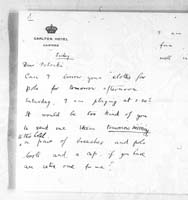 CARLTON HOTEL
CANNES
Friday
Dear
Can I borrow your clothes for
polo for tomorrow afternoon
Saturday. I am playing at 2.30?
It would be too kind of you
to send me them tomorrow morning
at the hotel
a pair of breeches and polo
boots and a cap if you have
an extra one for me?
I am
from